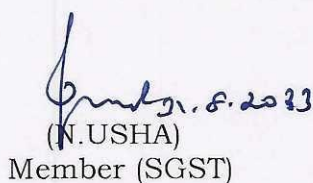 31.8.2023
(N.USHA)
Member (SGST)